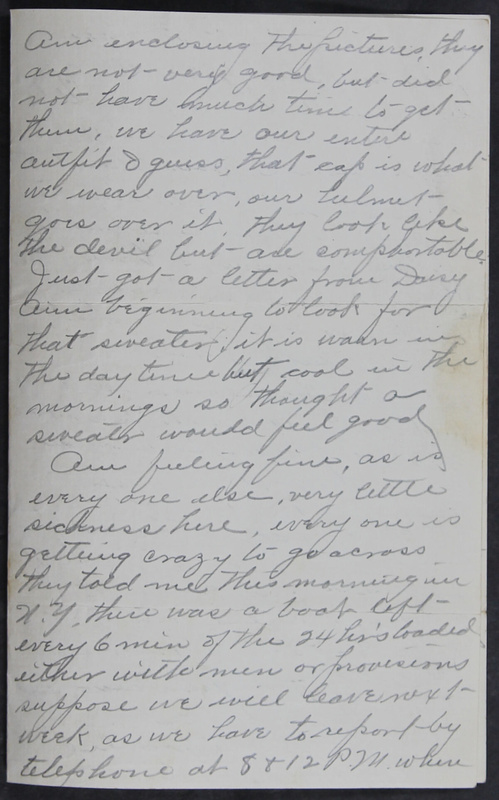 Am enclosing the pictures, they
are not very good, but did
not have much time to get
them, we have our entire
outfit I guess, that cap is what
we wear over, our helmet
goes over it, they look like
the devil but are comphortable.
Just got a letter from Daisy
am beginning to look for
that sweater, it is warm in
the day time but cool in the
mornings so thought a
sweater would feel good
Am feeling fine, as is
every one else, very little
sickness here, every one is
getting crazy to go across
they told me this morning in
N.Y. there was a boat left
every 6 min of the 24 hrs loaded
either with men or provisions
suppose we will leave next
week, as we have to report by
telephone at 8 & 12 P.M. where